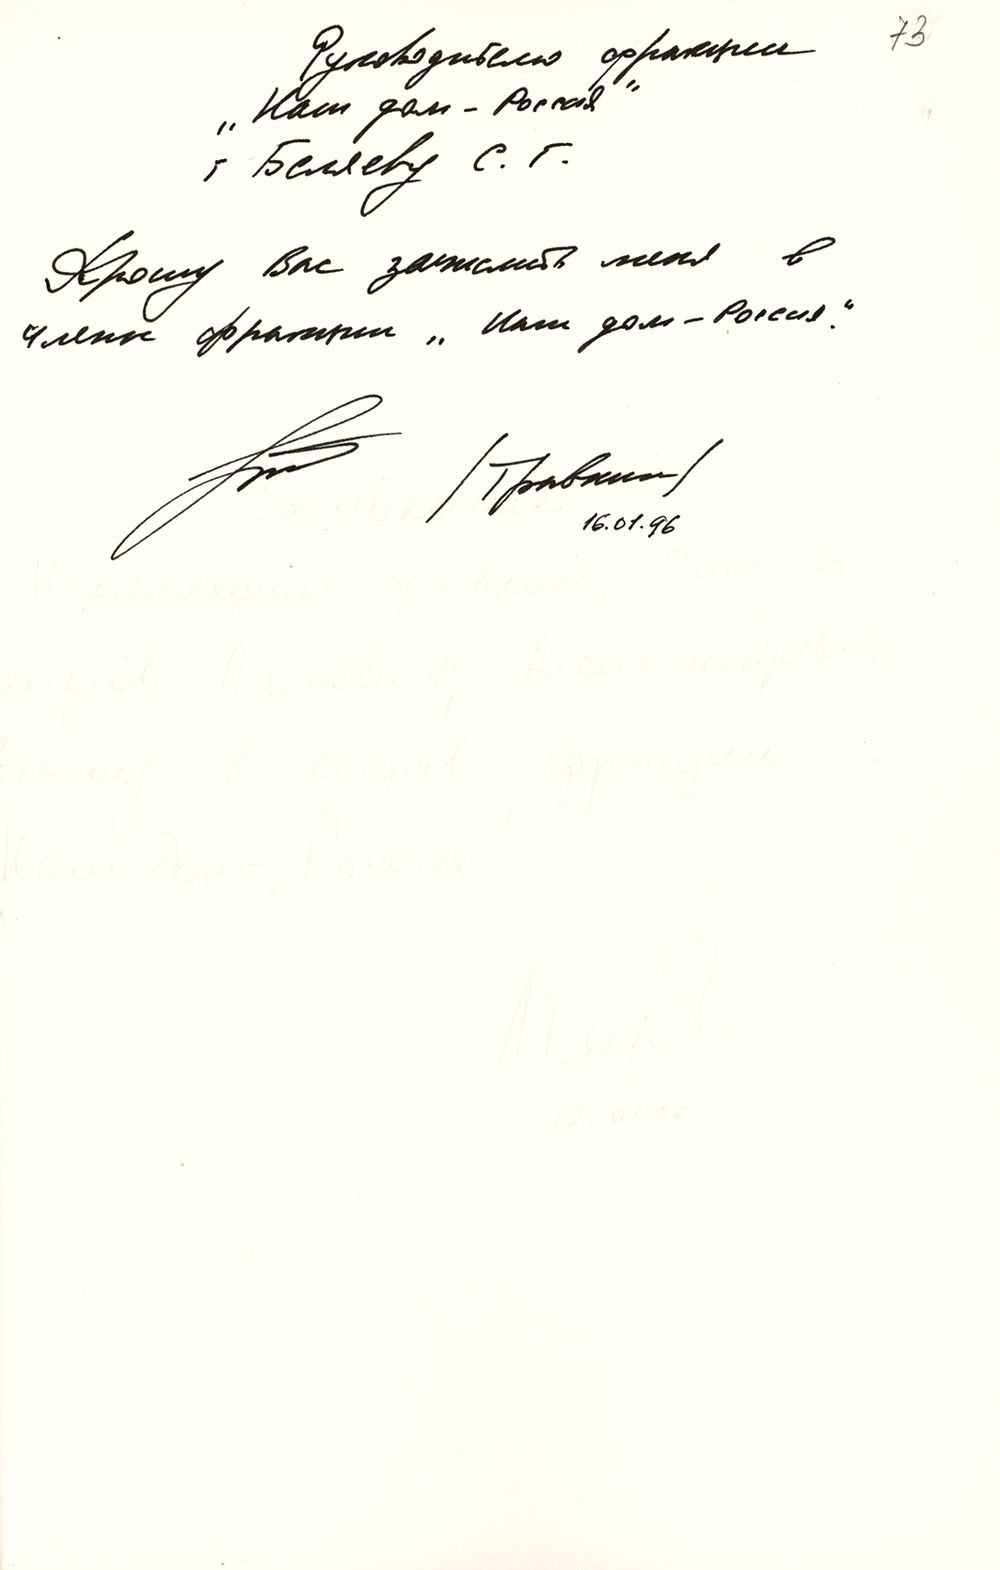 73
Руководителю фракции
„Наш дом - Россия"
г Беляеву С. Г.
Прошу Вас зачислить меня в
члены фракции „Наш дом - Россия."
/Травкин/
16.01.96
Заявление
заявляю, что я
Александр Александрович
вхожу в состав фракции
Наш дом - Россия
12.01.96